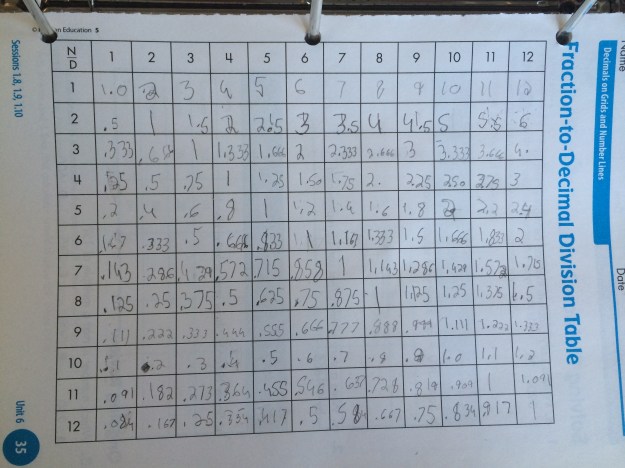 Name
Date
Decimals on Grids and Number Lines
Fraction-to-Decimal Division Table
n Education 5
N D 1 2 3 4 5 6 7 8 9 10 11 12
1 1.0 2 3 4 5 6 7 8 9 10 11 12
2 .5 1 1.5 2 2.5 3 3.5 4 4.5 5 5.5 6
3 .333 1 1.333 1.666 2 2.333 2.666 3 3.333 3.666 4.
4 .25 .5 .75 1 1.25 1.50 1.75 2. 2.25 250 2.75 3
5 .2 .4 .6 .8 1 1.2 1.4 1.6 1.8 2 2.2 2.4
6 .167 .333 .5 .666 .833 1 1.167 1.333 1.5 1.666 1.833 2
7 .143 .286 .572 .715 .858 1 1.143 1.286 1.429 1.572 1.715
8 .125 .25 .375 .5 .625 .75 .875 1 1.125 1.25 1.375 1.5
9 .111 .222 .333 .444 .555 .666 .777 .888 .999 1.111 1.222 1.333
10 .1 .2 .3 .4 .5 .6 .7 .8 .9 1.0 1.1 1.2
11 .091 .182 .273 .364 .455 .546 .637 .728 .819 .909 1 1.091
12 .084 .167 .25 .334 .417 .5 .584 .667 .75 .834 .917 1
Sessions 1.8, 1.9, 1.10
Unit 6
35